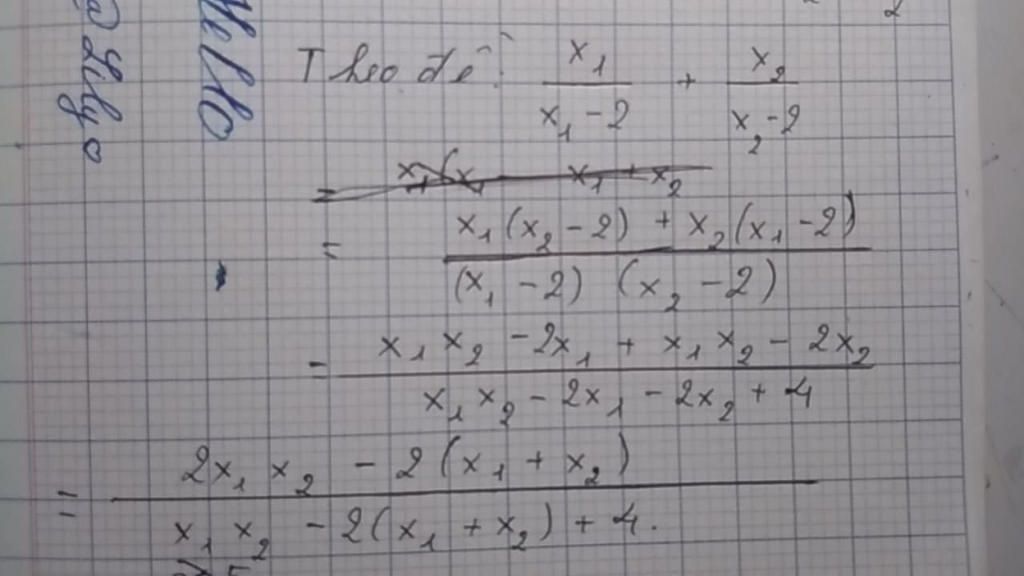 Theo đề: x₁/(x₁ - 2) + x₂/(x₂ - 2)
= (x₁(x₂ - 2) + x₂(x₁ - 2))/((x₁ - 2) (x₂ - 2))
= (x₁x₂ - 2x₁ + x₁x₂ - 2x₂)/(x₁x₂ - 2x₁ - 2x₂ + 4)
= (2x₁x₂ - 2(x₁ + x₂))/(x₁x₂ - 2(x₁ + x₂) + 4.)